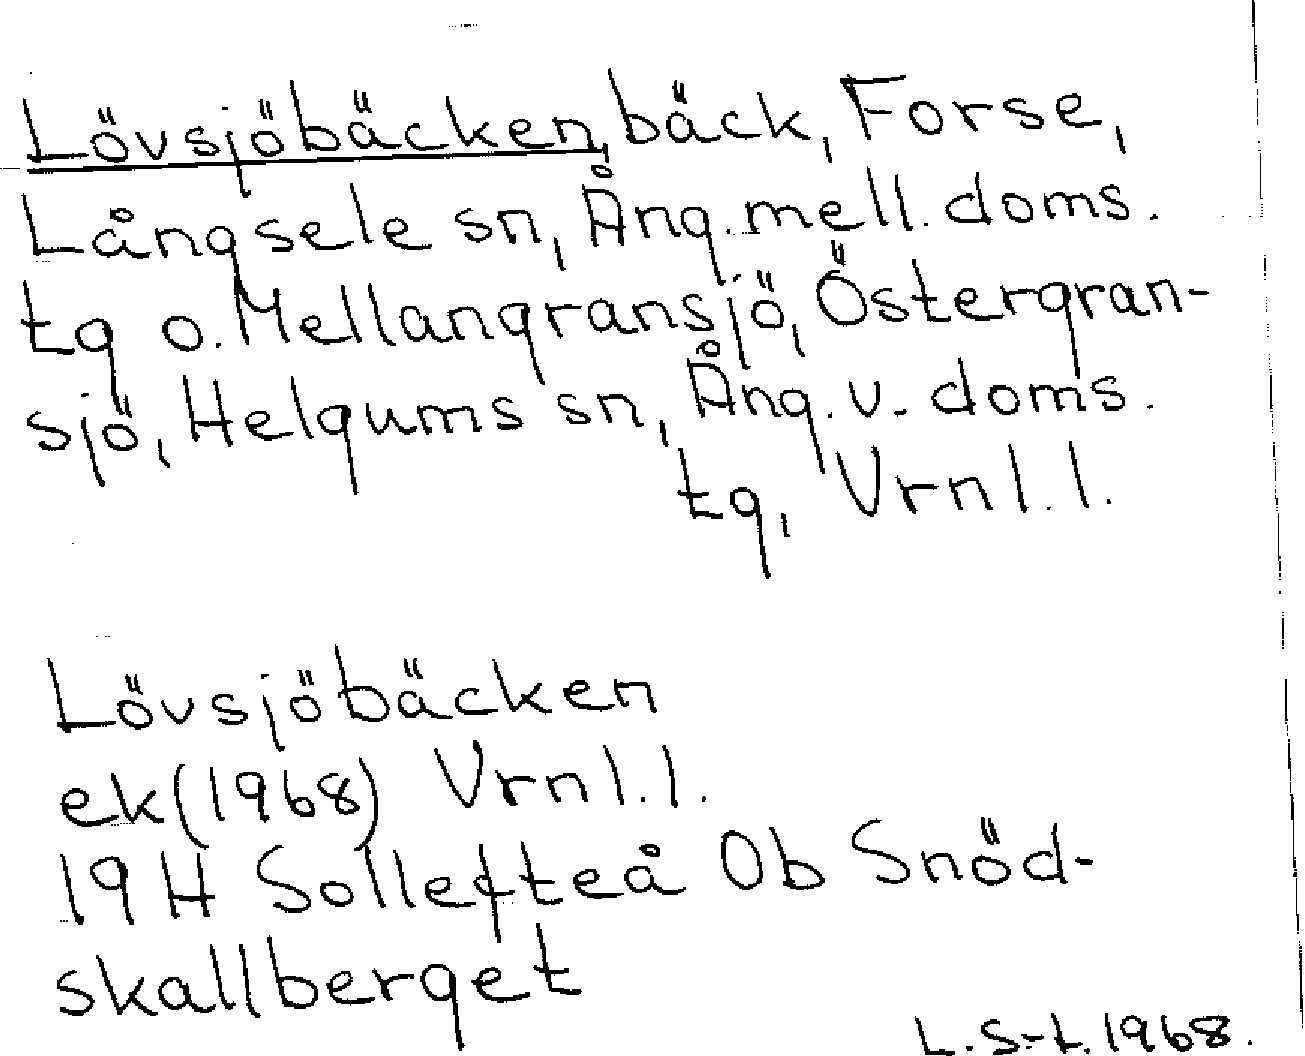 Lövsjöbäcken, bäck, Forse,
Långsele sn, Ång. mell. doms.
tg o. Mellangransjö, Östergran-
sjö, Helgums sn, Ång. v. doms.
tg, Vrnl.l.
Lövsjöbäcken
ek(1968) Vrnl.l.
19H Sollefteå 0b Snöd-
skallberget
L. S-L. 1968.